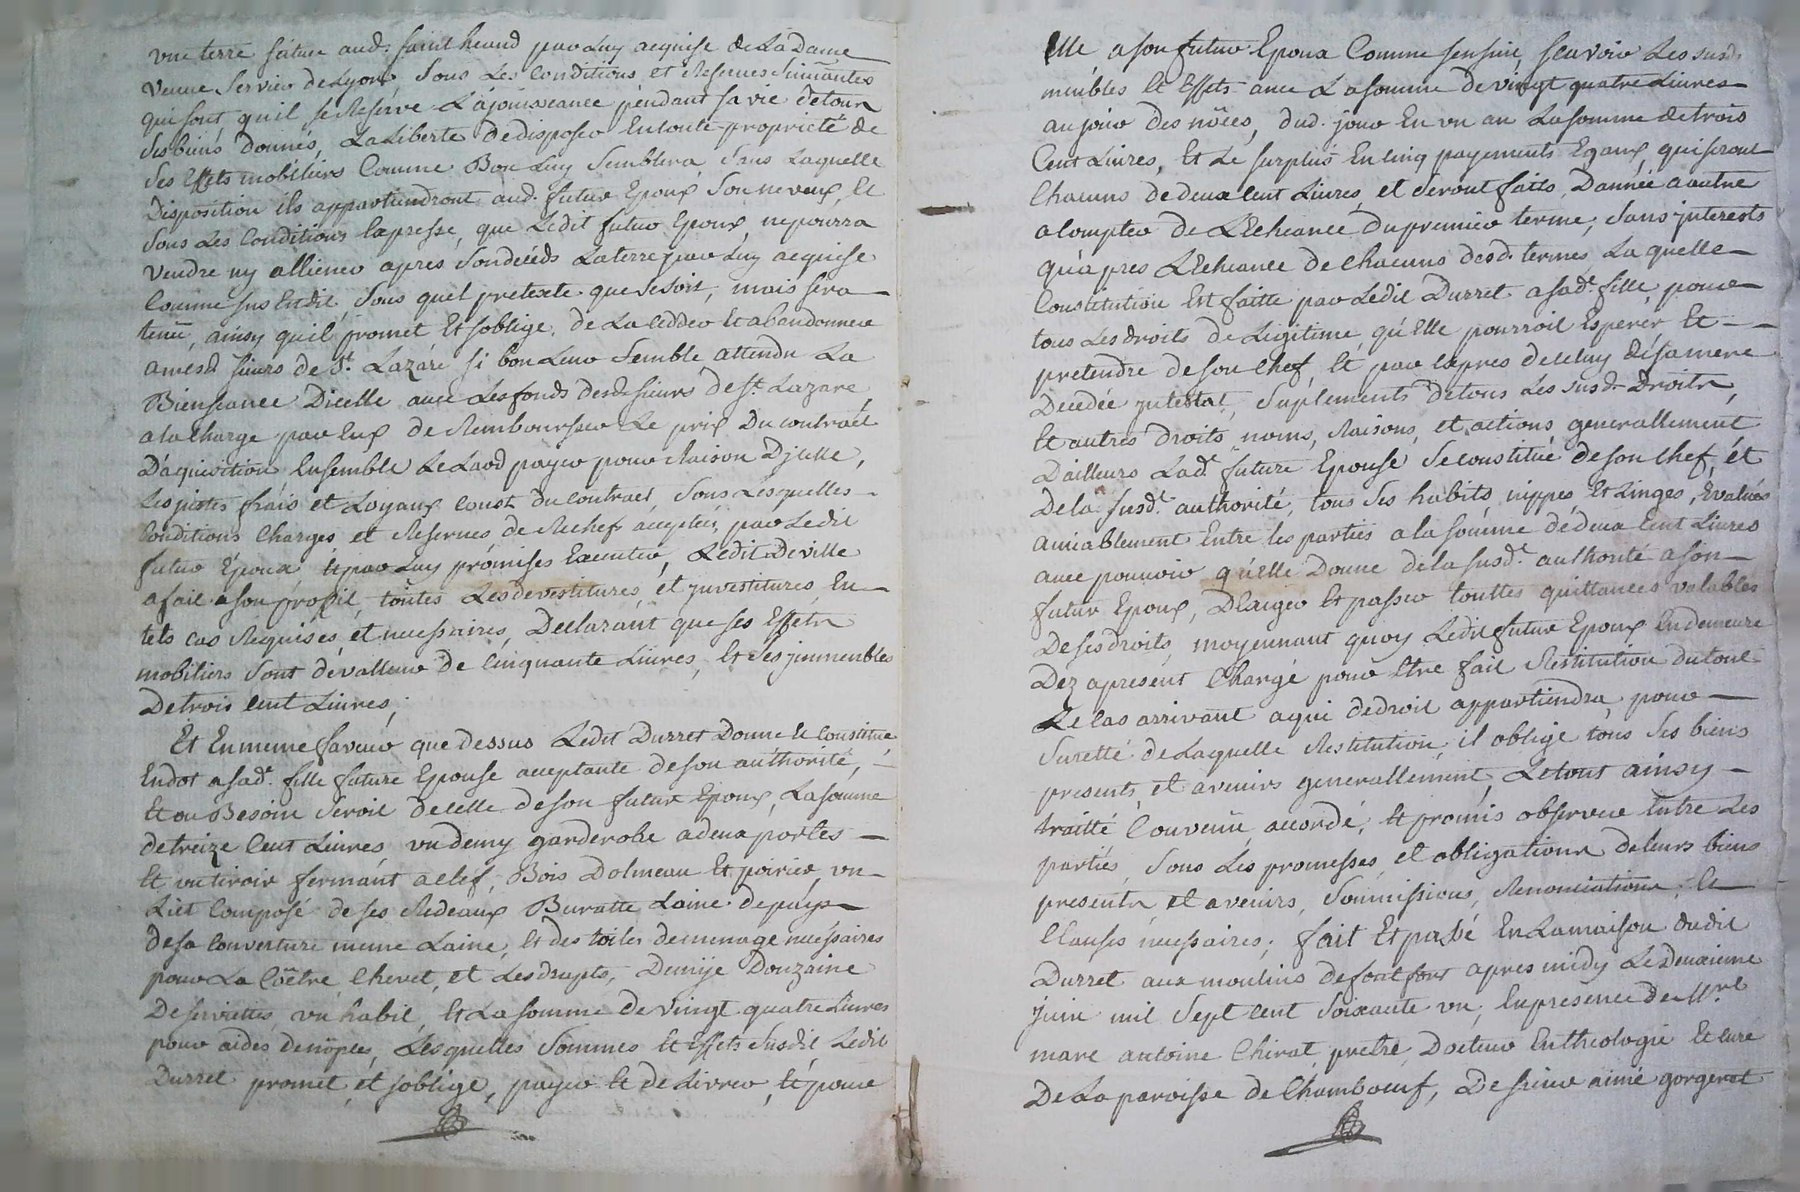 une terre située aud. saint heand par luy acquise de La Dame
veuve Servier de Lyon, Sous Les Conditions et Reserves Suivantes
qui sont qu'il se Reserve La jouissance pendant sa vie de tous
Ses biens donnés, La Liberté de disposer En toute propriété de
Ses Effets mobiliers Comme Bon Luy Semblera, Sans Laquelle
Disposition ils appartiendront aud. futur Epoux, Son neveux, Et
Sous Les Conditions Expresse, que Ledit futur Epoux, ne pourra
Vendre ny alliener apres Son décéds La terre par Luy acquise
Comme sus Est dit, Sous quel pretexte que ce Soit, mais sera
tenu, ainsy qu'il promet Et soblige, de La Cedder Et abandonner
a mesd. sieurs de St. Lazare si bon Leur Semble, attendu La
Bienseance Dicelle avec Les fonds desd. sieurs de St. Lazare,
a la Charge par Eux de Rembourser Le prix Du contract
D'aquisition, Ensemble Le Laod payer pour Raison Dicelle,
Les justes frais et Loyaux Coust du contract, Sous Lesquelles
Conditions Charges et Reserves de Rechef acceptées par Ledit
futur Epoux Et par Luy promises Executer, Ledit Deville
a fait a son profit, toutes Les devestitures, et Investitures, En
tels cas Requises, et necessaires, Declarant que ses Effets
mobiliers Sont de valleur de Cinquante Livres, Et Ses immeubles
De trois Cent Livres,
Et En meme faveur que dessus Ledit Durret Donne Et Constitue
En dot a sad. fille future Epouse acceptante de son authorité,
Et ou Besoin Seroit de celle de son futur Epoux, La somme
de treize Cent Livres, un demy garderobe a deux portes
Et un tiroir fermant a clef, Bois Dolmeau Et poirier, un
Lict Composé de ses Redeaux Buratte Laine de pays
de sa Couverture meme Laine, Et des toiles de menage necessaires
pour La Coëtre, Chevet, et Les drapts, Demije Douzaine
De serviettes, un habit, Et La somme de vingt quatre Livres
pour aides de nôples, Lesquelles Sommes Et Effets susdit Ledit
Durret promet, et soblige, payer Et de Livrer, Et pour
Elle a son futur Epoux Comme sensuit, scavoir Les susd.
meubles Et Effets avec La somme de vingt quatre Livres
au jour des nôces, dud. jour En un an La somme de trois
Cent Livres, Et Le surplus En Cinq payements Egaux, qui seront
Chacuns de deux Cent Livres, et Seront faits D'année a autre
a Compter de L'Echeance Du premier terme, Sans interests
qu'apres L'Echeance de Chacuns desd. termes La quelle
Constitution Est faitte par Ledit Durret a sad. fille, pour
tous Les droits de Legitime, qu'Elle pourroit Esperer, Et
pretendre de son Chef, Et par Expres de celuy de sa mere
Decedée intestat, Suplements de tous Les susd. Droits,
Et autres droits, noms, Raisons, et actions generallement
D'ailleurs Lad. future Epouse Se constitue de son Chef, et
De la susd. authorité, tous Ses habits, nippes Et Linges, Evalués
amiablement Entre les parties a la somme de deux Cent Livres
avec pouvoir qu'elle Donne de la susd. authorité a son
futur Epoux, D'Exiger Et passer touttes quittances valables
De ses droits, moyennant quoy Ledit futur Epoux En demeure
Dez apresent Chargé pour Etre fait Restitution du tout
Le Cas arrivant a qui de droit appartiendra, pour
Suretté de Laquelle Restitution, il oblige tous Ses biens
presents, et avenirs generallement, Le tout ainsy
traitté Convenü, accordé, Et promis observer Entre Les
parties, Sous Les promesses, et obligations de leurs biens
presents et avenirs, Soumissions, Renonciations, Et
Clauses necessaires, fait Et passé En La maison dudit
Durret aux moulins de fontfort apres midy Le Deuxieme
juin mil Sept Cent Soixante un, En presence de Mre.
marc antoine Chirat prêtre Docteur En theologie Et curé
De La paroisse de Chambœuf, De sieur aimé gorgeret